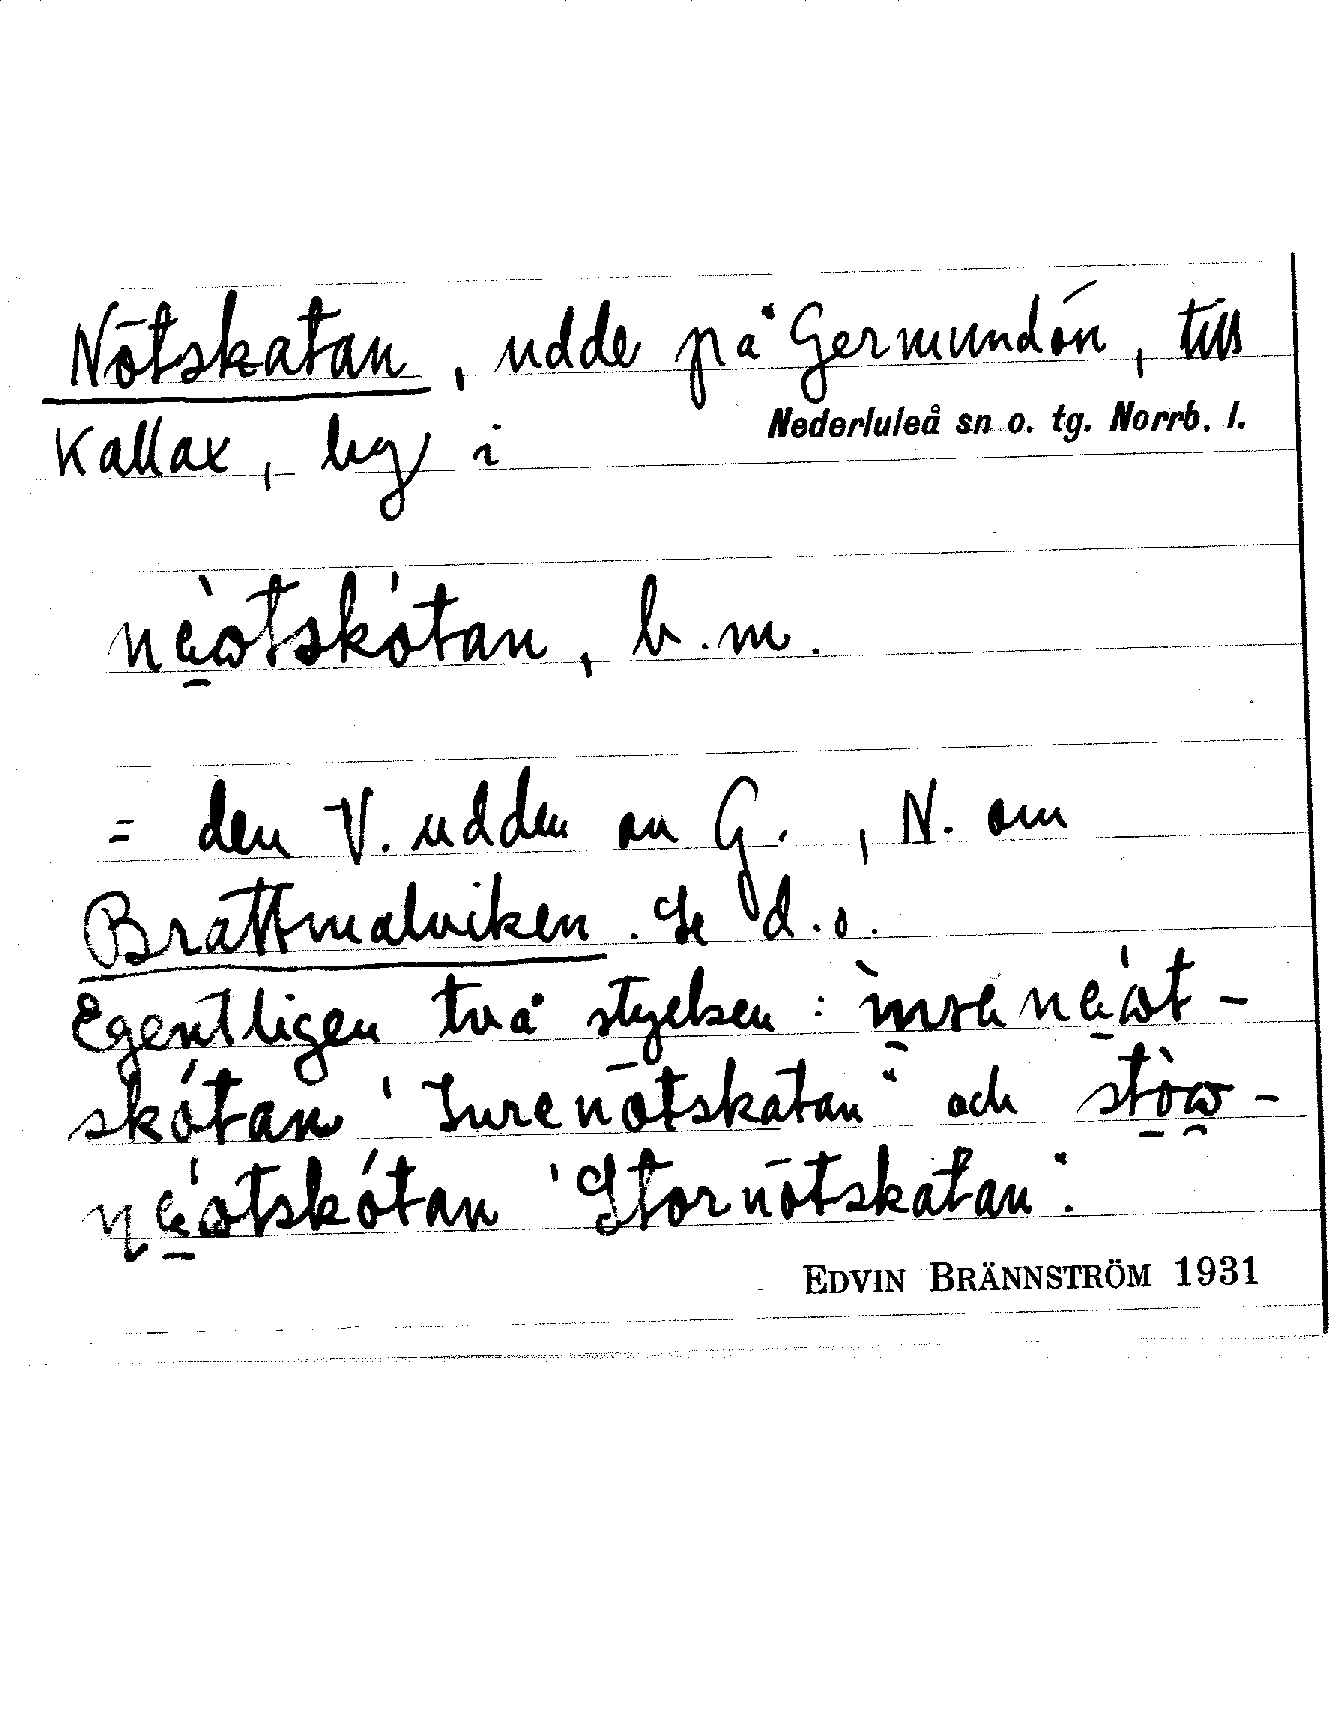 Nötskatan, udde på Germundön, till
Nederluleå sn o. tg. Norrb. l.
Kallax, by i
nèωtskótan, b.m.
= den V. udden av G., N. om
Brattmalviken. Se d.o.
Egentligen två stycken: ìnrəneωt-
skótan 'Inre nötskatan' och stòω-
neωtskótan 'Stor nötskatan'.
EDVIN BRÄNNSTRÖM 1931